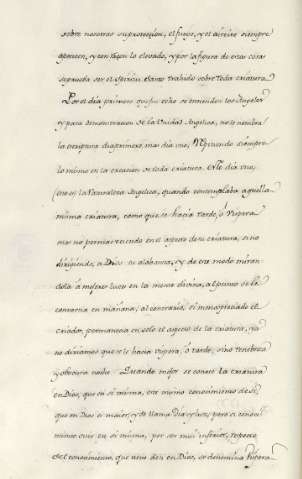 sobre nosotros su proteccion, el fuego, y el aire siempre
apetecen, y por la figura de estas cosas
separada ser el Espiritu Santo trahido sobre toda criatura.
Por el dia primero que fue echo se entienden los Angeles
y para demonstracion de la Unidad Angelica, no le nombra
la escriptura dia primero, mas dia uno, repitiendo siempre
lo mismo en la creacion de toda criatura. Este dia uno,
(esto es la Naturaleza Angelica, quando contemplaba aquella
misma criatura, como que se hacia tarde, ó Vispera
mas no permaneciendo en el aspecto de su criatura, sino
dirigiendo, a Dios su alabanza, y de este modo miran
dola á mejor luz en la mente divina, al punto se la
convertia en mañana; al contrario, si menospreciado el
criador, permanecia en solo el aspecto de la criatura, ya
no deciamos que se le hacia vispera, ó tarde, sino tenebrosa
y obscura noche. Quando mejor se conoce la criatura
en Dios, que en si misma, este mismo conocimiento de si,
que en Dios es mayor, y se llama Dia y luz, pero el conoci
miento suio en si misma, por ser mui inferior, respecto
del conocimiento, que tiene de si en Dios, se denomina Vispera